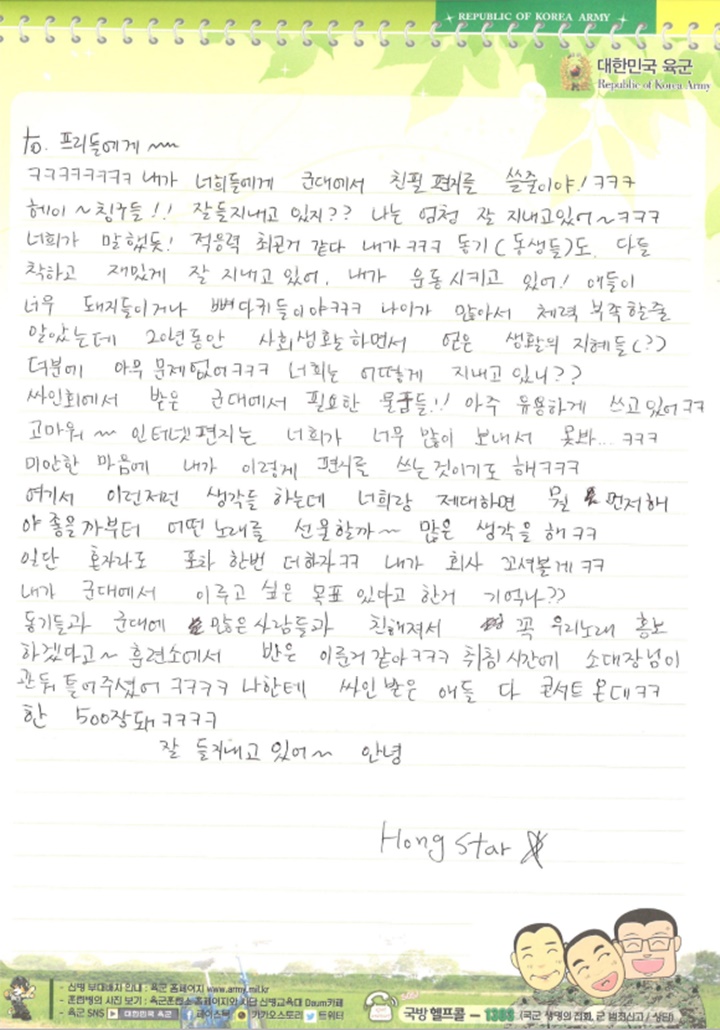 REPUBLIC OF KOREA ARMY
대한민국 육군
Republic of Korea Army
to. 프리들에게 ~~
ㅋㅋㅋㅋㅋㅋㅋㅋ 내가 너희들에게 군대에서 친필 편지를 쓸줄이야! ㅋㅋㅋ
헤이 ~ 칭구들!! 잘들지내고 있지?? 나는 엄청 잘 지내고있어~ㅋㅋㅋ
너희가 말했듯! 적응력 최곤거 같다 내가 ㅋㅋㅋ 동기(동생들)도 다들
착하고 재밌게 잘 지내고 있어. 내가 운동 시키고 있어! 애들이
너무 돼지들이거나 뼈다귀들이야ㅋㅋㅋ 나이가 많아서 체력 부족할줄
알았는데 20년동안 사회생활하면서 얻은 생활의 지혜들(?)
덕분에 아무 문제없어ㅋㅋㅋ 너희는 어떻게 지내고 있니??
싸인회에서 받은 군대에서 필요한 물품들!! 아주 유용하게 쓰고있어ㅋㅋ
고마워~ 인터넷편지는 너희가 너무 많이 보내서 못봐... ㅋㅋㅋ
미안한 마음에 내가 이렇게 편지를 쓰는것이기도 해ㅋㅋㅋ
여기서 이런저런 생각들 하는데 너희랑 제대하면 뭘 먼저해
야 좋을까부터 어떤 노래를 선물할까~ 많은 생각을 해 ㅋㅋ
일단 혼자라도 포차 한번 더하자ㅋㅋ 내가 회사 꼬셔볼게 ㅋㅋ
내가 군대에서 이루고 싶은 목표 있다고 한거 기억나??
동기들과 군대에 많은사람들과 친해져서 꼭 우리노래 홍보
하겠다고~ 훈련소에서 반은 이룬거 같아ㅋㅋㅋ 취침시간에 소대장님이
관둬 틀어주셨어 ㅋㅋㅋㅋ 나한테 싸인 받은 애들 다 콘서트 온대ㅋㅋ
한 500장돼ㅋㅋㅋㅋ
잘 들지내고 있어~ 안녕
Hong Star
- 신병 부대배치 안내 : 육군 홈페이지 www.army.mil.kr
- 훈련병의 사진 보기 : 육군훈련소 홈페이지와 사단 신병교육대 Daum카페
- 육군 SNS 대한민국 육군 페이스북 카카오스토리 트위터
국방 헬프콜 - 1303 (국군 생명의 전화, 군 범죄신고 / 상담)